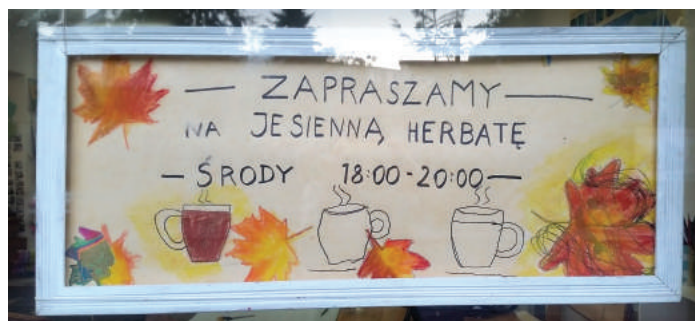 — ZAPRASZAMY —
NA JESIENNĄ HERBATĘ
— ŚRODY 18:00-20:00 —